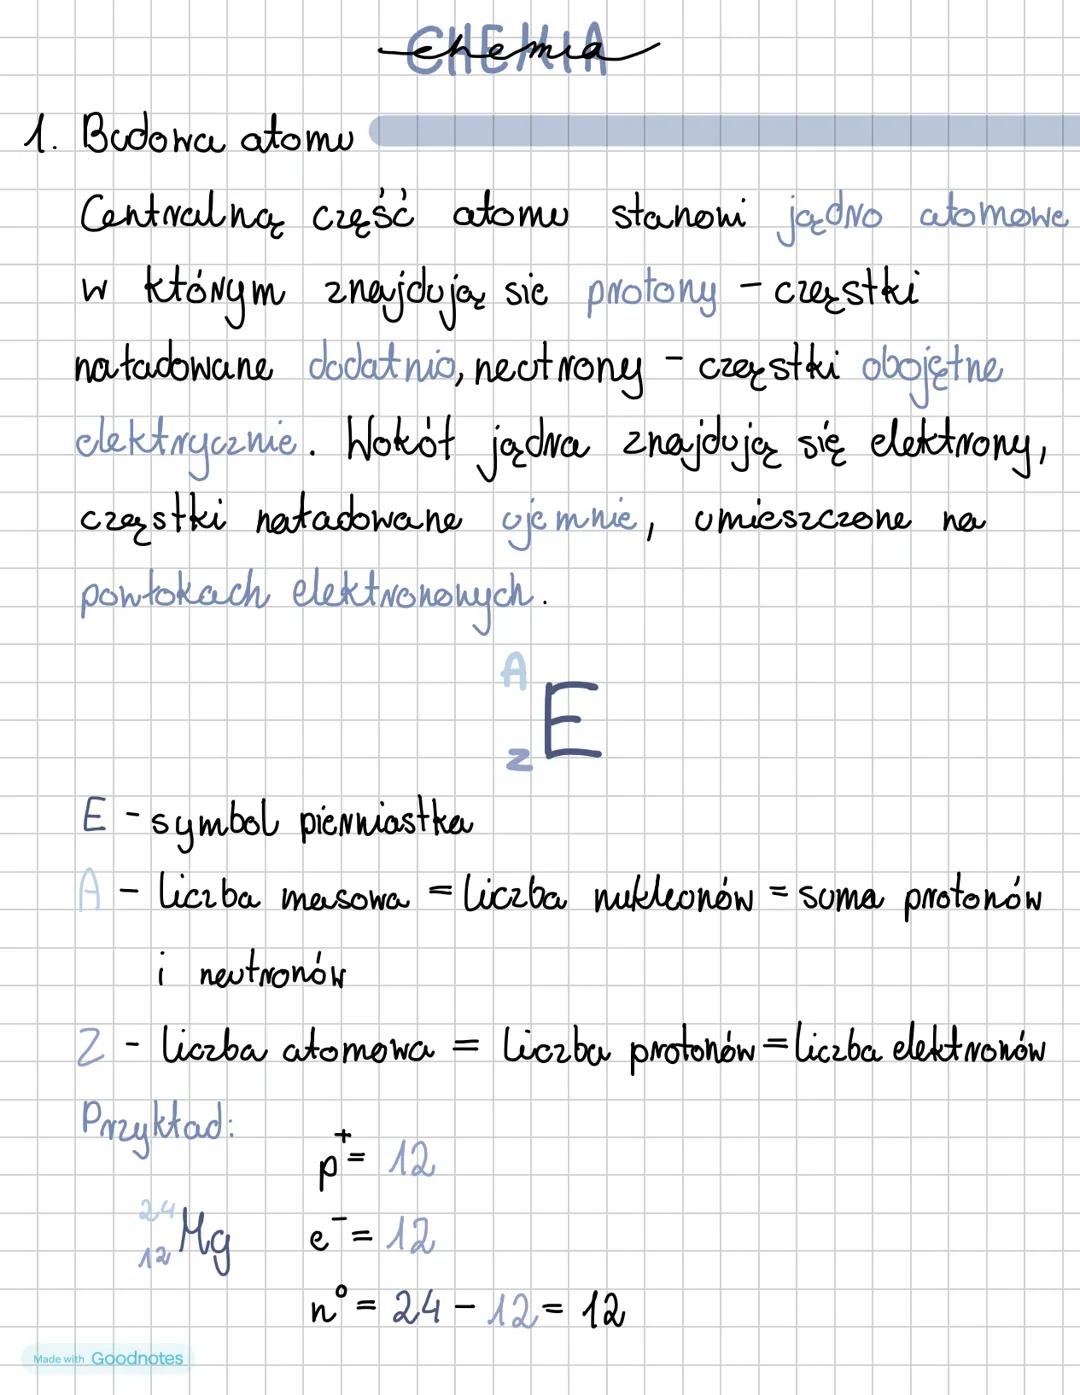 CHEMIA
chemia
1. Budowa atomu
Centralną część atomu stanowi jądro atomowe
w którym znajdują się protony - cząstki
naładowane dodatnio, neutrony - cząstki obojętne
elektrycznie. Wokół jądra znajdują się elektrony,
cząstki naładowane ujemnie, umieszczone na
powłokach elektronowych.
A
E
Z
E - symbol pierwiastka
A - liczba masowa = liczba nukleonów = suma protonów
i neutronów
Z - liczba atomowa = liczba protonów = liczba elektronów
Przykład:
p⁺ = 12
²⁴₁₂Mg e⁻ = 12
n⁰ = 24 - 12 = 12
Made with Goodnotes